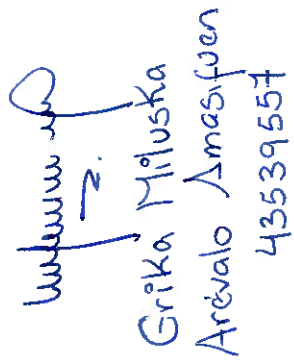 Erika Miluska
Arévalo Amasifuen
43539557